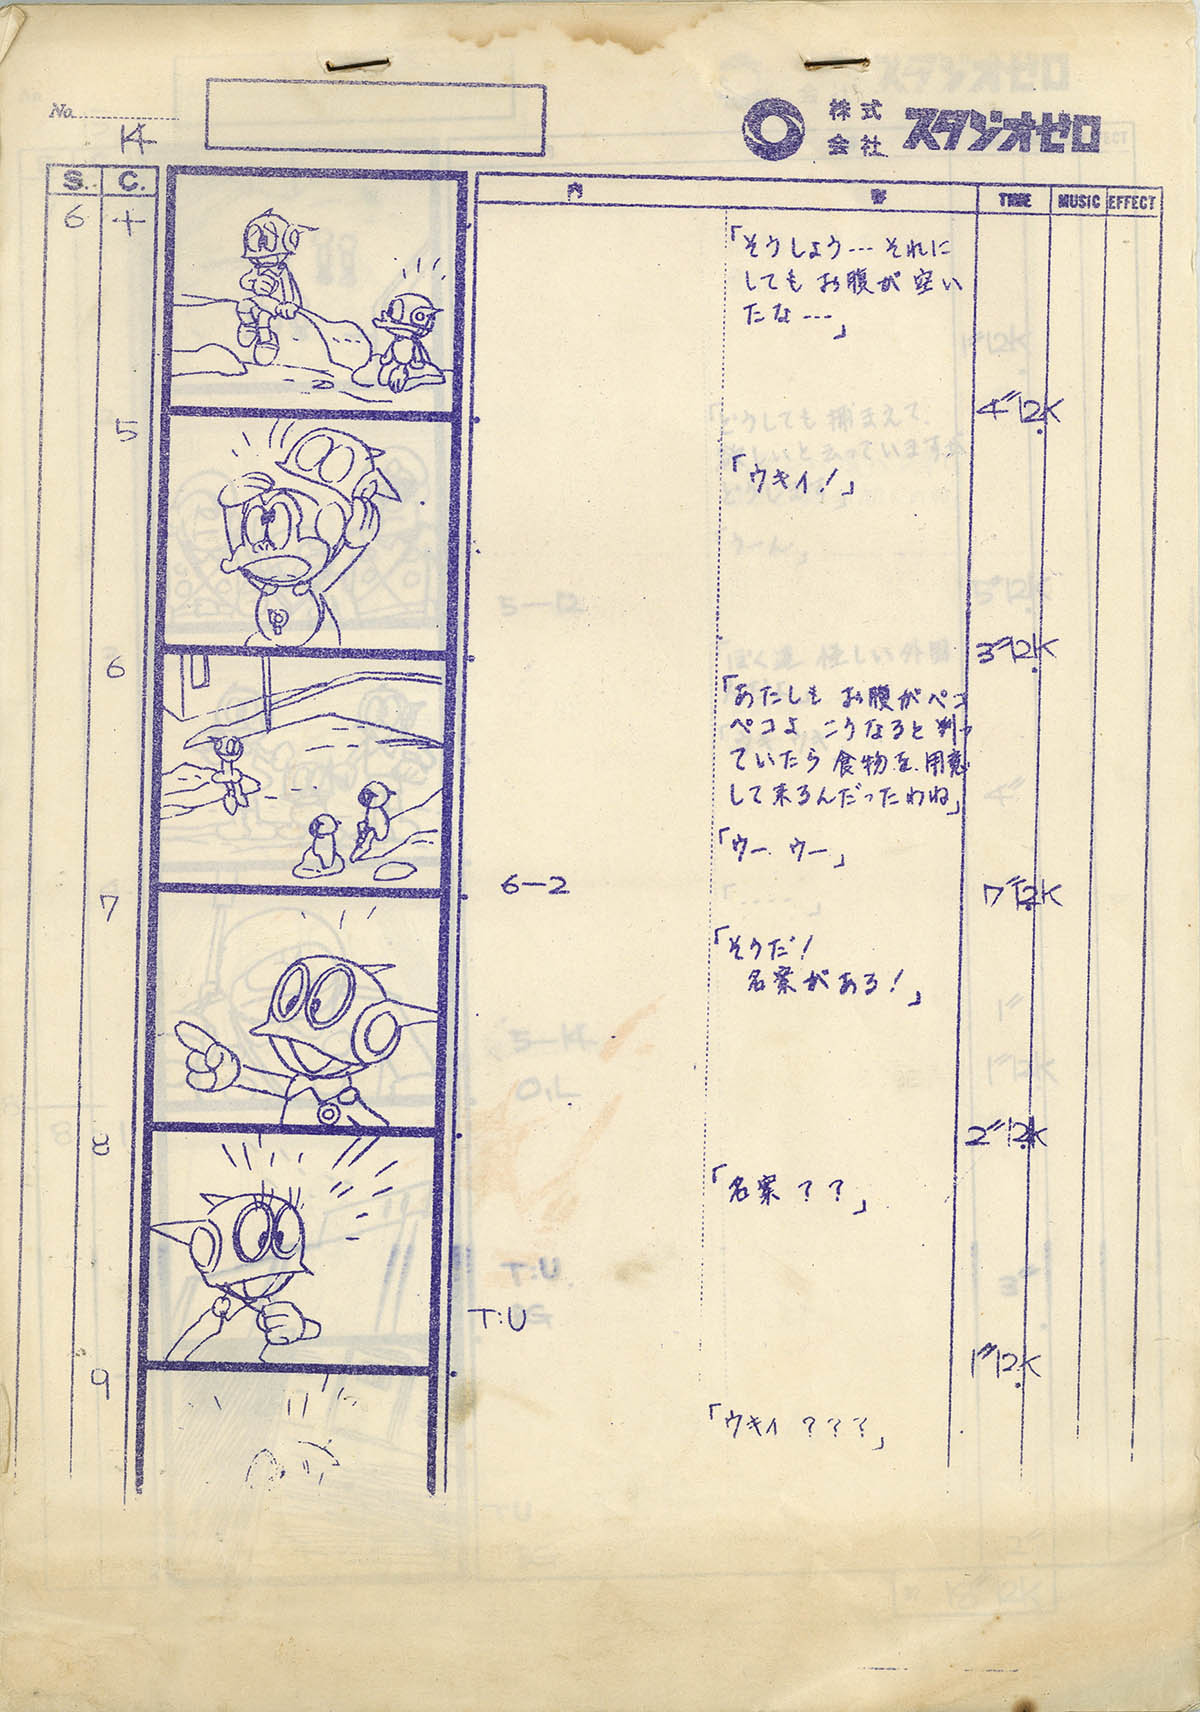 No.
14
株式
会社 スタジオゼロ
S. C. 内 容 TIME MUSIC EFFECT
6 4
「そうしよう--- それに
してもお腹が空い
たな---」
4"12K
5
「ウキイ!」
3"12K
6
「あたしもお腹がペコ
ペコよ こうなると判っ
ていたら食物を用意
して来るんだったわね」
「ウー ウー」
6-2
7"12K
7
「そうだ!
名案がある!」
2"12K
8
「名案??」
T:U
1"12K
9
「ウキイ???」